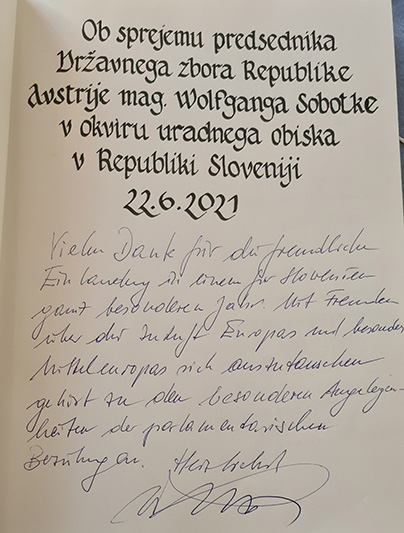 Ob sprejemu predsednika
Državnega zbora Republike
Avstrije mag. Wolfganga Sobotke
v okviru uradnega obiska
v Republiki Sloveniji
22.6.2021
Vielen Dank für die freundliche
Einladung in einem für Slowenien
ganz besonderen Jahr. Mit Freunden
über die Zukunft Europas und besonders
Mitteleuropas sich auszutauschen
gehört zu den besonderen Angelegen-
heiten der parlamentarischen
Beziehungen. Herzlichst